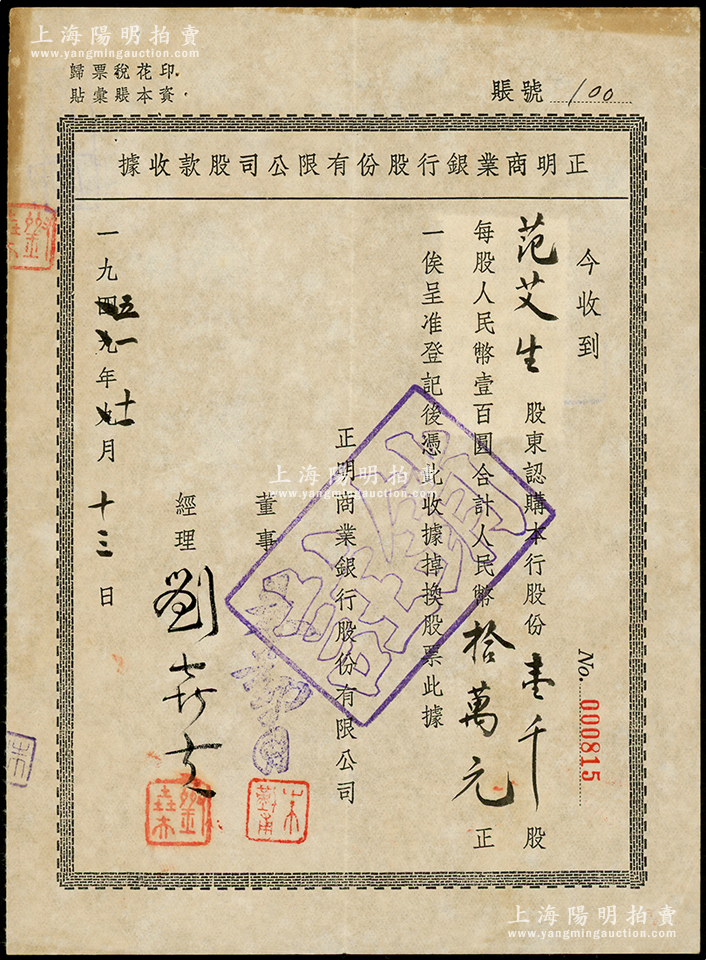 上海陽明拍賣
www.yangmingauction.com
印花稅票歸
資本賬彙貼
賬號 100
正明商業銀行股份有限公司股款收據
今收到
范艾生 股東認購本行股份壹千股
每股人民幣壹百圓合計人民幣拾萬元正
一俟呈准登記後憑此收據掉換股票此據
正明商業銀行股份有限公司
董事
經理 劉
一九五一年十一月十三日
No. 000815
上海陽明拍賣
www.yangmingauction.com
上海陽明拍賣
www.yangmingauction.com